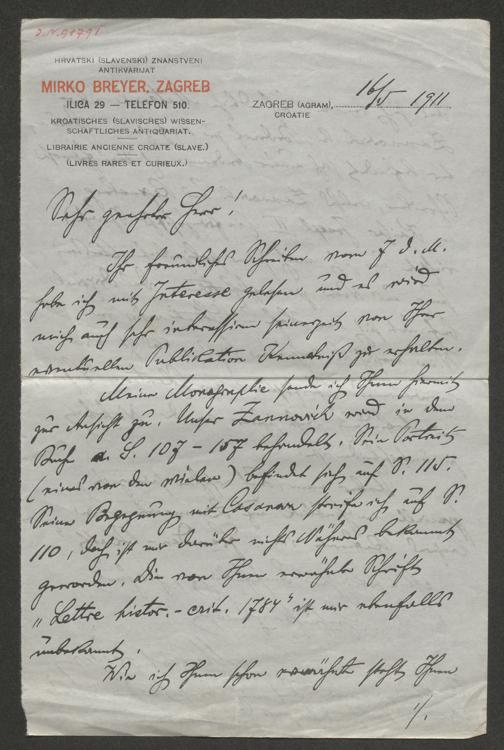 J.N. 98791
HRVATSKI (SLAVENSKI) ZNANSTVENI
ANTIKVARIJAT
MIRKO BREYER, ZAGREB
ILICA 29 — TELEFON 510.
KROATISCHES (SLAVISCHES) WISSEN-
SCHAFTLICHES ANTIQUARIAT.
LIBRAIRIE ANCIENNE CROATE (SLAVE.)
(LIVRES RARES ET CURIEUX.)
ZAGREB (AGRAM), 16/5 1911
CROATIE
Sehr geehrter Herr!
Ihr freundliches Schreiben vom 7 d. M.
habe ich mit Interesse gelesen und es wird
mich auch sehr interessiren seinerzeit von Ihrer
eventuellen Publication Kenntniß zu erhalten.
Meine Monographie sende ich Ihnen hiermit
zur Ansicht zu. Unser Zannovich wird in dem
Buche S. 107 – 157 behandelt. Sein Portrait
(eines von den vielen) befindet sich auf S. 115.
Seine Begegnung mit Casanova streife ich auf S.
110, doch ist mir darüber nichts Näheres bekannt
geworden. Die von Ihnen erwähnte Schrift
"Lettre histor.-crit. 1784" ist mir ebenfalls
unbekannt.
Wie ich Ihnen schon erwähnte steht Ihnen
./.